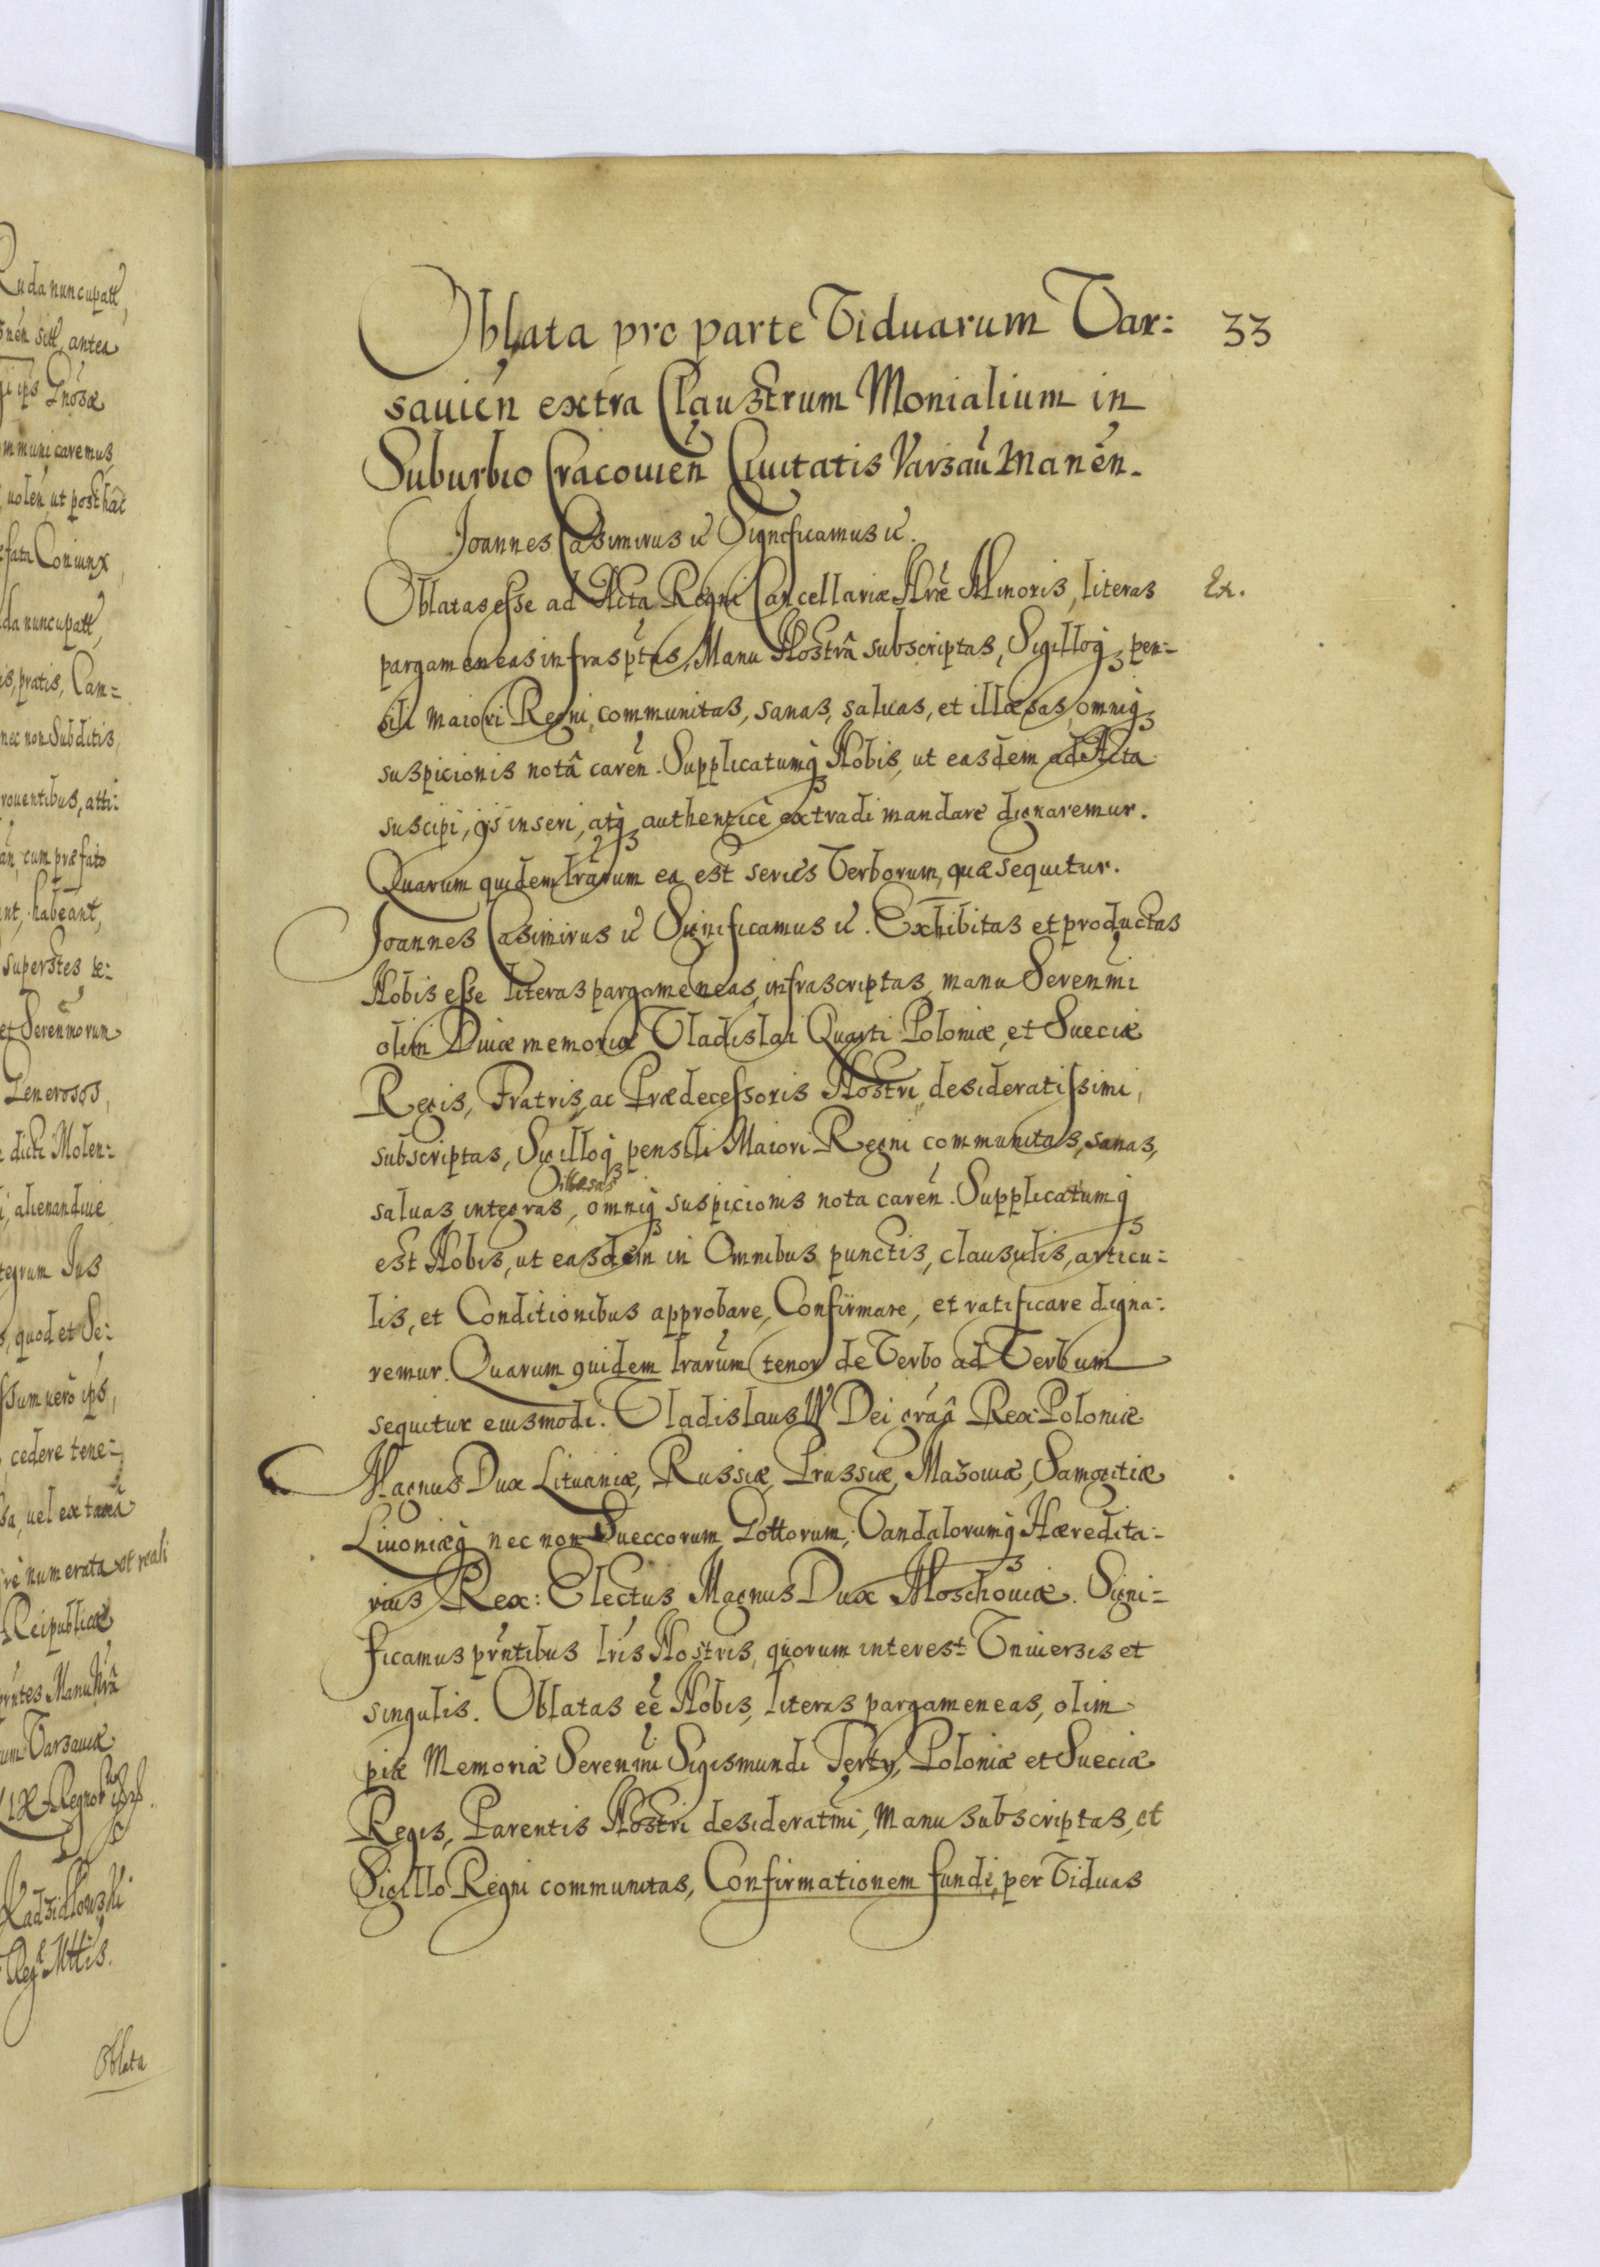 Ruda nuncupatt,
antea
Gnosæ
mmunicaremus
uolen̄, ut posthac
fata Coniunx
da nuncupatt,
is, pratis, Cam=
nec non Subditis,
rouentibus, atti=
cum præfato
nt, habeant,
superstes
et Seren̄morum
Generosos,
dicti Molen=
i, alienandiue
tegrum Ius
s, quod et Se=
sum uerò ips,
cedere tene=
sa, uel ex taxa
rè numerata et reali
Reipublicæ
prn̄tes Manu Nrâ
um Varsauiæ
Radzidlowski
Mttis.
Oblata
33
Oblata pro parte Viduarum Var=
sauien̄ extra Claustrum Monialium in
Suburbio Cracouien̄ Ciuitatis Varsau̅ Manen̄.
Joannes Casimirus &c Significamus &c.
Oblatas esse ad Acta Regni Cancellariæ Nræ Minoris, literas
Ex.
pargameneas infrasp̄tas, Manu Nostrâ subscriptas, Sigilloq₃ pen=
sili maiori Regni communitas, sanas, saluas, et illæsas, omniq₃
suspicionis notâ caren̄. Supplicatumq₃ Nobis, ut easdem ad Acta
suscipi, ijs inseri, atq₃ authenticè extradi mandare dignaremur.
Quarum quidem lrārum ea est series Verborum, quæ sequitur.
Joannes Casimirus &c Significamus &c. Exhibitas et productas
Nobis esse literas pargameneas, infrascriptas, manu Seren̄mi
olim Diuæ memoriæ Vladislai Quarti Poloniæ, et Sueciæ
Regis, Fratris, ac Prædecessoris Nostri, desideratissimi,
subscriptas, Sigilloq₃ pensili Maiori Regni communitas, sanas,
illæsas
saluas integras, omniq₃ suspicionis nota caren̄. Supplicatumq₃
est Nobis, ut easdem in Omnibus punctis, clausulis, articu=
lis, et Conditionibus approbare, Confirmare, et ratificare digna=
remur. Quarum quidem lrārum tenor de Verbo ad Verbum
sequitur eiusmodi. Vladislaus IV Dei grāâ Rex Poloniæ
Magnus Dux Lituaniæ, Russiæ, Prussiæ, Mazouiæ, Samogitiæ
Liuoniæq₃ nec non Sueccorum Gottorum, Vandalorumq₃ Hæredita=
rius Rex: Electus Magnus Dux Moschouiæ. Signi=
ficamus prn̄tibus lrīs Nostris, quorum interest Vniuersis et
singulis. Oblatas eē Nobis, literas pargameneas, olim
piæ Memoriæ Seren̄mi Sigismundi Tertij, Poloniæ et Sueciæ
Regis, Parentis Nostri desideratm̄i, Manu subscriptas, et
Sigillo Regni communitas, Confirmationem fundi, per Viduas